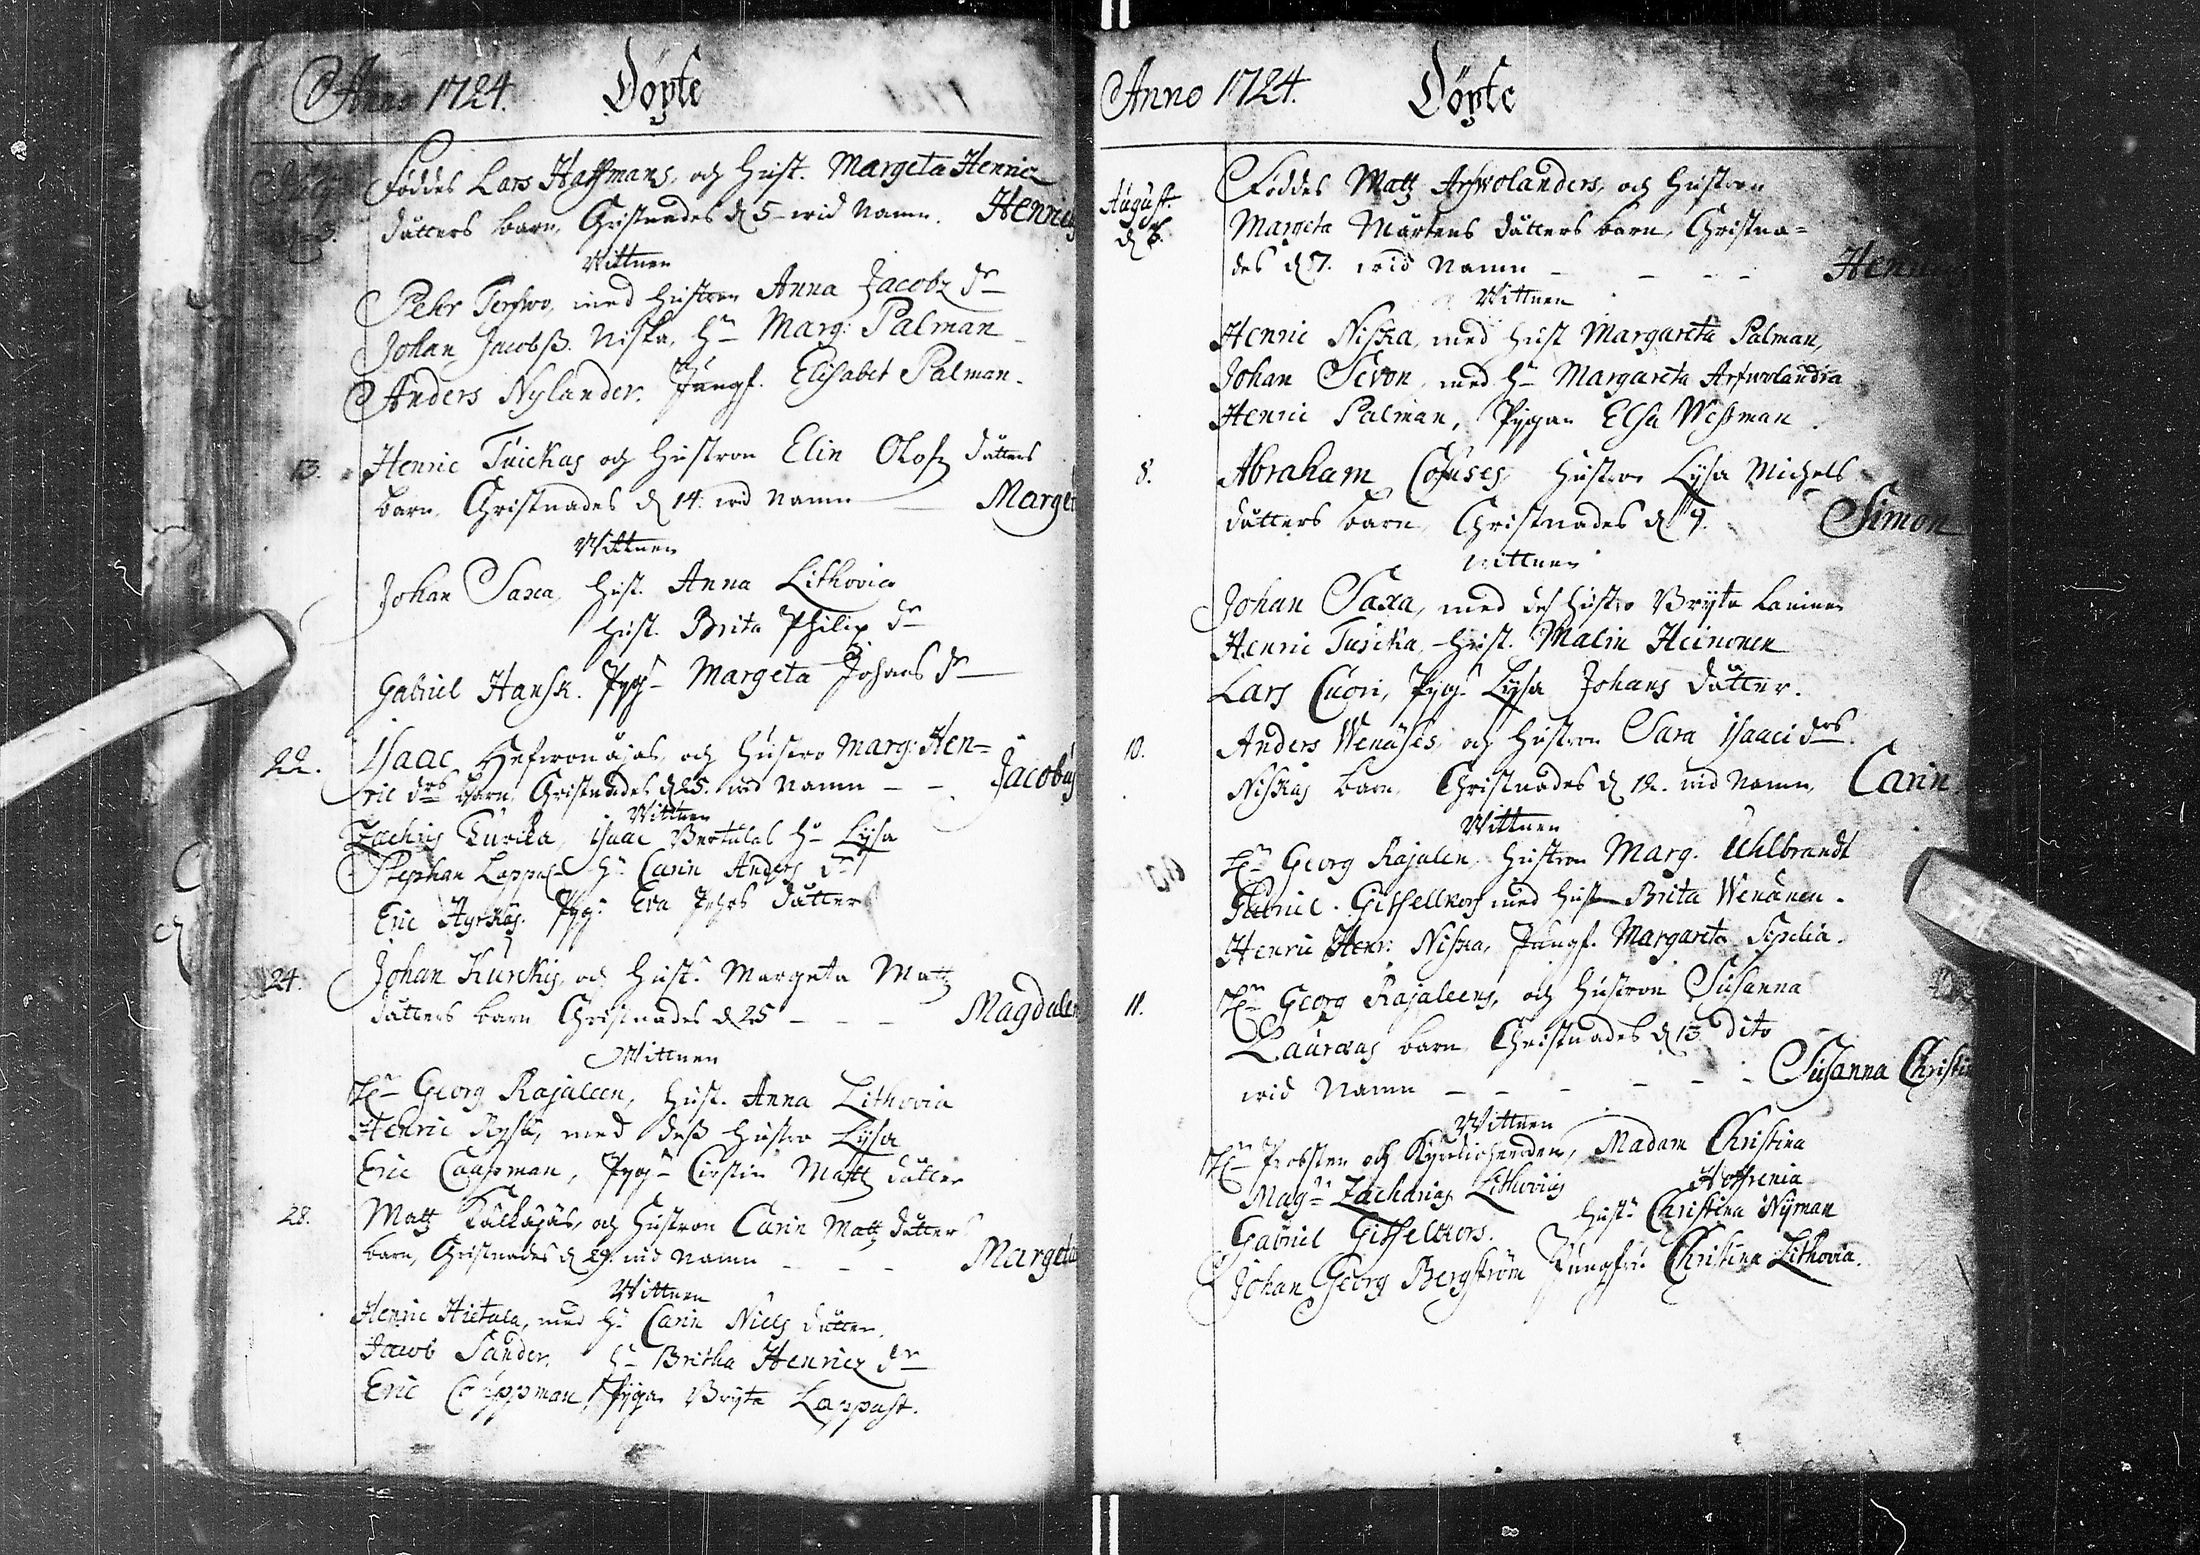 Anno 1724. Döpte
Föddes Lars Haffmans, och Hust. Margeta Henricz
3. dåtters barn, Christnades d 5 wid Namn. Henric
Wittnen
Pehr Terfwo, med Hustron Anna Jacobz dr
Johan Jacobß. Niska, Hu Marg: Palman
Anders Nylander. Jungf. Elisabet Palman.
13. Henric Tuickas och Hustron Elin Olofz dåtters
barn, Christnades d 14. wid Namn Marget
Wittnen
Johan Saxa, Hust. Anna Lithovia
Hust. Brita Philip dr
Gabriel Hansk. Pyg Margeta Johans dr
22. Isaac och Hustro Marg: Hen=
ric drs barn, Christnades d 25. wid Namn - - Jacobus
Wittnen
Zachris Kurika, Isaac Bertulas Hu Lysa
Stephan Lappas Hu Carin Anders dr
Eric Hyrkäs. Pyg: Eva Pehrs dåtter
24. Johan Kurckis, och Hust. Margeta Matz
dåtters barn Christnades d 25 - - - Magdalen
Wittnen
Hr Georg Rajaleen, Hust. Anna Lithovia
Henric med deß Hustro Lysa
Eric Caapman, Pyg Cirstin Mattz dåtter
28. Matz och Hustron Carin Matz dåtters
barn, Christnades d 29. wid Namn - - - Margeta
Wittnen
Henric Hietala, med Hu Carin Niels dåtter.
Jacob Sander. Hu Britha Henricz dr
Eric Pygan Bryta Lappast.
Anno 1724. Döpte
August Föddes Matz Arfwolanders, och Hustron
d 5. Margeta Mårtens dåtters barn, Christna=
des d 7. wid Namn - - - - Henric
Wittnen
Henric Niska, med Hust Margareta Palman,
Johan Sevon, med Hu Margareta Arfwolandra
Henric Palman, Pygan Elsa Weßman.
8. Abraham Hustro Lysa Michels
dåtters barn, Christnades d 9. Simon
wittnen
Johan Saxa, med des Hustro Bryta
Henric Tuicka, Hust. Malin Heinonen
Lars Cuori, Pyg: Lysa Johans dåtter.
10. Anders Wenäses, och Hustron Sara Isaacs drs
Niskas barn, Christnades d 12. wid Namn, Carin
Wittnen
Hr Georg Rajalen, Hustron Marg. Uhlbrandt
Gabriel Gisselkors med Hust Brita Wenänen.
Henric Henr: Niska, Jungf. Margareta Sipelia.
11. Hr Georg Rajaleens, och Hustron Susanna
Lauraeas barn, Christnades d 13 dito
wid Namn - - - - - - Susanna Christin
Wittnen
Hr Probsten och Kyrckioherden, Madam Christina
Magr Zacharias Lithovius Hoffrenia
Gabriel Gisselkors. Hust: Christina Nyman
Johan Georg Bergström Jungfru Christina Lithovia.